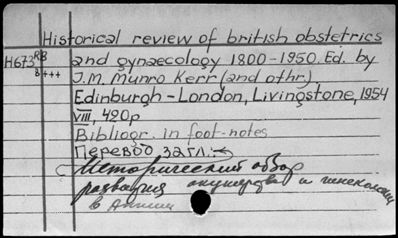 Historical review of british obstetrics
H673 RB and gynaecology 1800-1950. Ed. by
B+++ J.M. Munro Kerr (and othr.)
Edinburgh-London, Livingstone, 1954
VIII, 420p
Bibliogr. in foot-notes
Перевод загл.:
Исторический обзор
развития акушерства и гинекологии
в Англии